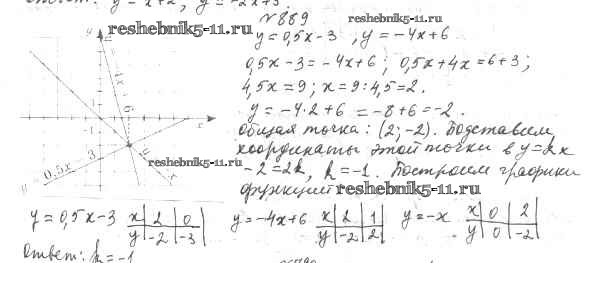 y = x+2, y = -2x+3.
№ 889
reshebnik5-11.ru
reshebnik5-11.ru
y = 0,5x-3, y = -4x+6
0,5x-3 = -4x+6; 0,5x+4x = 6+3;
4,5x = 9; x = 9:4,5 = 2.
y = -4·2+6 = -8+6 = -2.
Общая точка: (2; -2). Подставим
координаты этой точки в y=kx
-2 = 2k, k = -1. Построим графики
функций
reshebnik5-11.ru
reshebnik5-11.ru
y = 0,5x-3
y = 0,5x-3 x | 2 | 0 y = -4x+6 x | 2 | 1 y = -x x | 0 | 2
y | -2 | -3 y | -2 | 2 y | 0 | -2
Ответ: k = -1